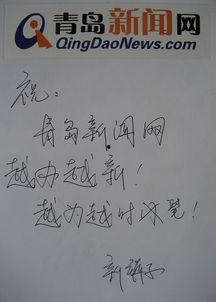 青岛新闻网
QingDaoNews.com
祝：
青岛新闻网
越办越新！
越办越时尚！
新裤子